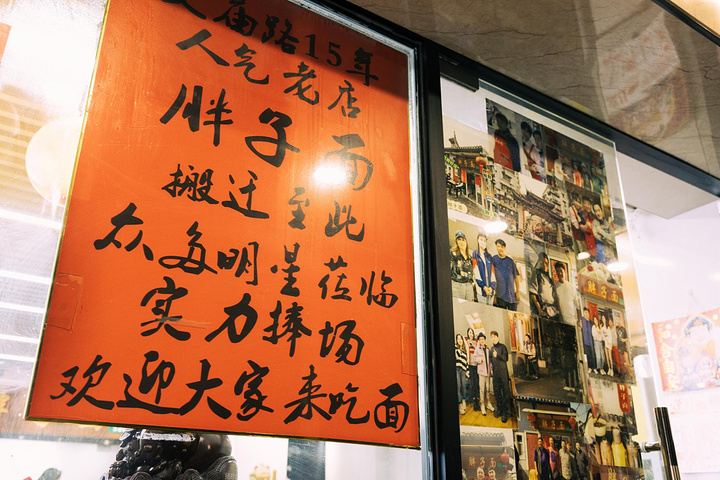 文庙路15年
人气老店
胖子面
搬迁至此
众多明星莅临
实力捧场
欢迎大家来吃面
胖子面